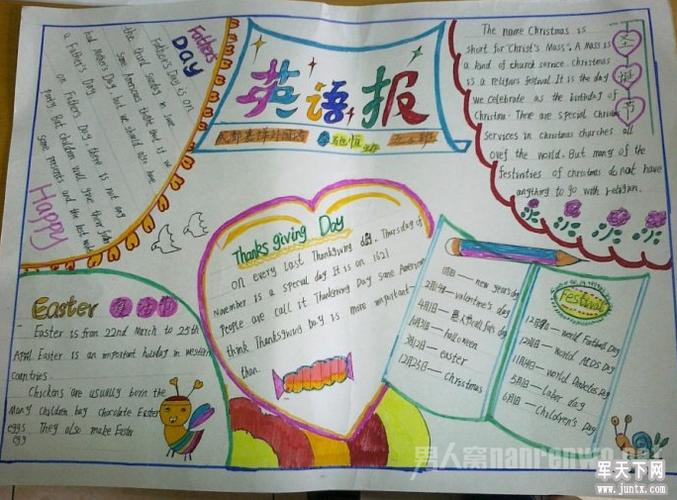 英语报
Fathers
DAY
Father's Day is on
third Sunday in June
some Americans think that if we
had Mother's Day, but we should also have
a Father's Day.
on Father's Day, there is not big
party. But children will give their father
some presents and the best
Happy
The name Christmas is
short for "Christ's Mass". A Mass is
a kind of church service. Christmas
is a religious festival. It is the day
we celebrate as the birthday of
Christ. There are special Christmas
services in Christmas churches all
over the world. But many of the
festivities of christmas do not have
anything to go with religion.
圣
诞
节
Thanksgiving Day
on every last Thanksgiving day. Thursday of
November is a special day. It is on 1621
People are call it Thanksgiving Day some American
think Thanksgiving Day is more important
than.
Easter 复活节
Easter is from 22nd March to 25th
April. Easter is an important holiday in western
countries.
Chickens are usually born the
Many children buy chocolate Easter
eggs. They also make Easter
egg
1月1日—new year's day
2月14日—valentine's day
4月1日—愚人节
10月31日—halloween
easter
12月25日—Christmas
Festival
world Football Day
12月1日—World AIDS Day
11月14日—world Diabetes Day
5月1日—Labor day
6月1日—Children's Day
男人窝nanrenwo.net
军天下网
www.juntx.com